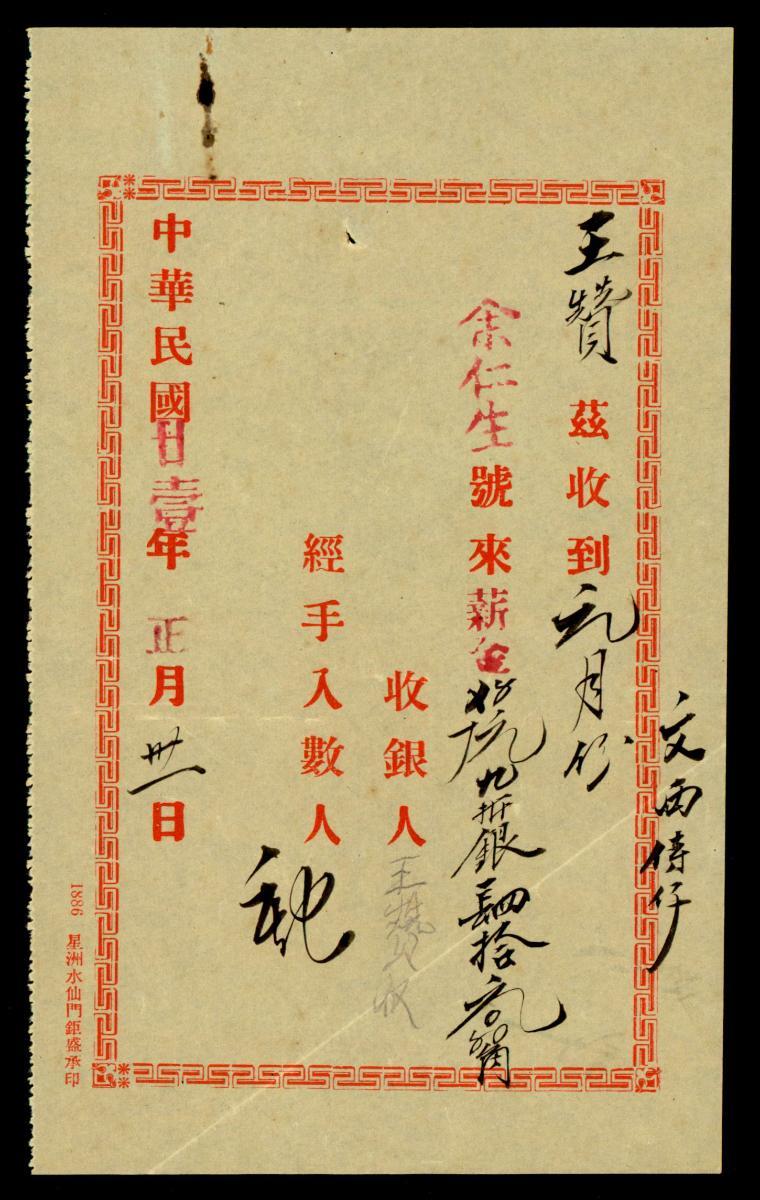 王贊 茲收到元月份
余仁生號來薪金 九折銀 四拾元
收銀人 王贊收
經手入數人
中華民國廿壹年正月卅一日
1886 星洲水仙門鉅盛承印